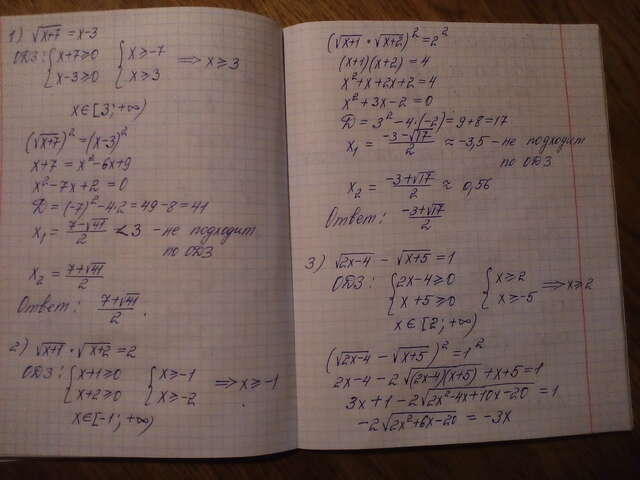 1) √(x+7) = x-3
ОДЗ: { x+7≥0 { x≥-7
{ x-3≥0 { x≥3 ⟹ x≥3
x∈[3; +∞)
(√(x+7))² = (x-3)²
x+7 = x²-6x+9
x²-7x+2=0
D = (-7)²-4·2 = 49-8 = 41
x₁ = (7-√41)/2 < 3 - не подходит
по ОДЗ
x₂ = (7+√41)/2
Ответ: (7+√41)/2.
2) √(x+1) · √(x+2) = 2
ОДЗ: { x+1≥0 { x≥-1
{ x+2≥0 { x≥-2 ⟹ x≥-1
x∈[-1; +∞)
(√(x+1) · √(x+2))² = 2²
(x+1)(x+2) = 4
x²+x+2x+2=4
x²+3x-2=0
D = 3²-4·(-2) = 9+8=17
x₁ = (-3-√17)/2 ≈ -3,5 - не подходит
по ОДЗ
x₂ = (-3+√17)/2 ≈ 0,56
Ответ: (-3+√17)/2
3) √(2x-4) - √(x+5) = 1
ОДЗ: { 2x-4≥0 { x≥2
{ x+5≥0 { x≥-5 ⟹ x≥2
x∈[2; +∞)
(√(2x-4) - √(x+5))² = 1²
2x-4-2√((2x-4)(x+5)) + x+5=1
3x+1-2√(2x²-4x+10x-20) = 1
-2√(2x²+6x-20) = -3x